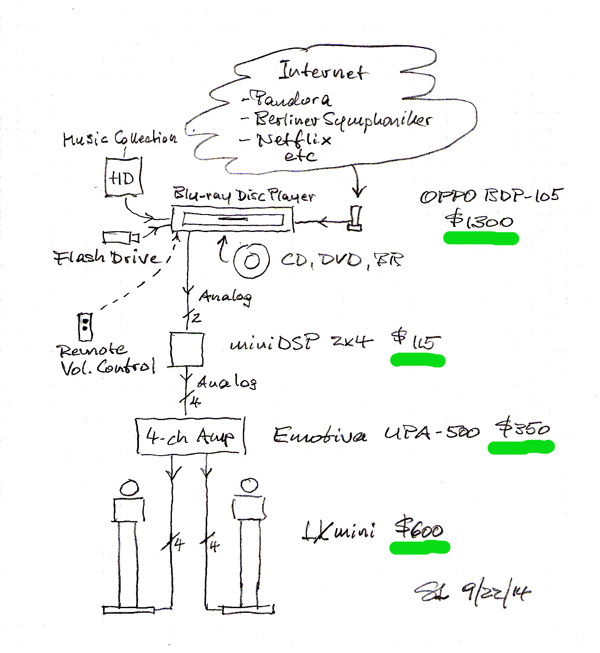 Internet
- Pandora
- Berliner Symphoniker
- Netflix
etc
Music Collection
HD
Blu-ray Disc Player
OPPO BDP-105
$1300
Flash Drive
CD, DVD, BR
Analog
2
Remote
Vol. Control
miniDSP 2x4 $115
Analog
4
4-ch Amp
Emotiva UPA-500 $350
4 4
LXmini $600
SL 9/22/14